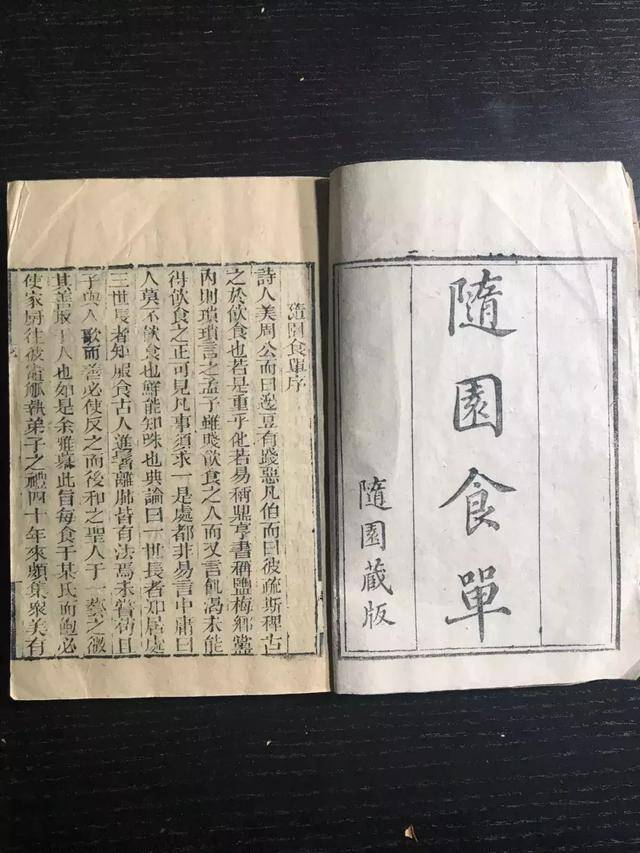 隨園食單
隨園藏版
隨園食單序
詩人美周公而曰籩豆有踐惡凡伯而曰彼疏斯稗古
之於飲食也若是重乎他若易稱鼎亨書稱鹽梅鄉黨
內則瑣瑣言之孟子雖賤飲食之人而又言飢渴未能
得飲食之正可見凡事須求一是處都非易言中庸曰
人莫不飲食也鮮能知味也典論曰一世長者知居處
三世長者知服食古人進鬐離肺皆有法焉未嘗苟且
子與人歌而善必使反之而後和之聖人于一藝之微
其善取于人也如是余雅慕此旨每食于某氏而飽必
使家厨往彼竈觚執弟子之禮四十年來頗集衆美有